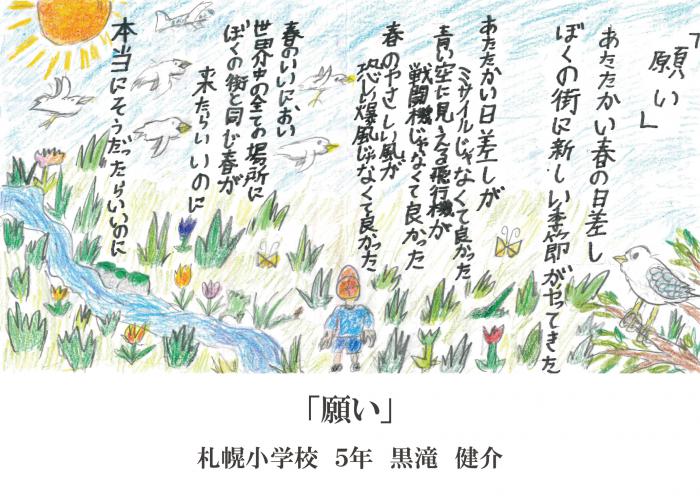 「願い」
あたたかい春の日差し
ぼくの街に新しい季節がやってきた
あたたかい日差しが
ミサイルじゃなくて良かった
青い空に見える飛行機が
戦闘機じゃなくて良かった
春のやさしい風が
恐い爆風じゃなくて良かった
春のいいにおい
世界中の全ての場所に
ぼくの街と同じ春が
来たらいいのに
本当にそうだったらいいのに
「願い」
札幌小学校 5年 黒滝 健介